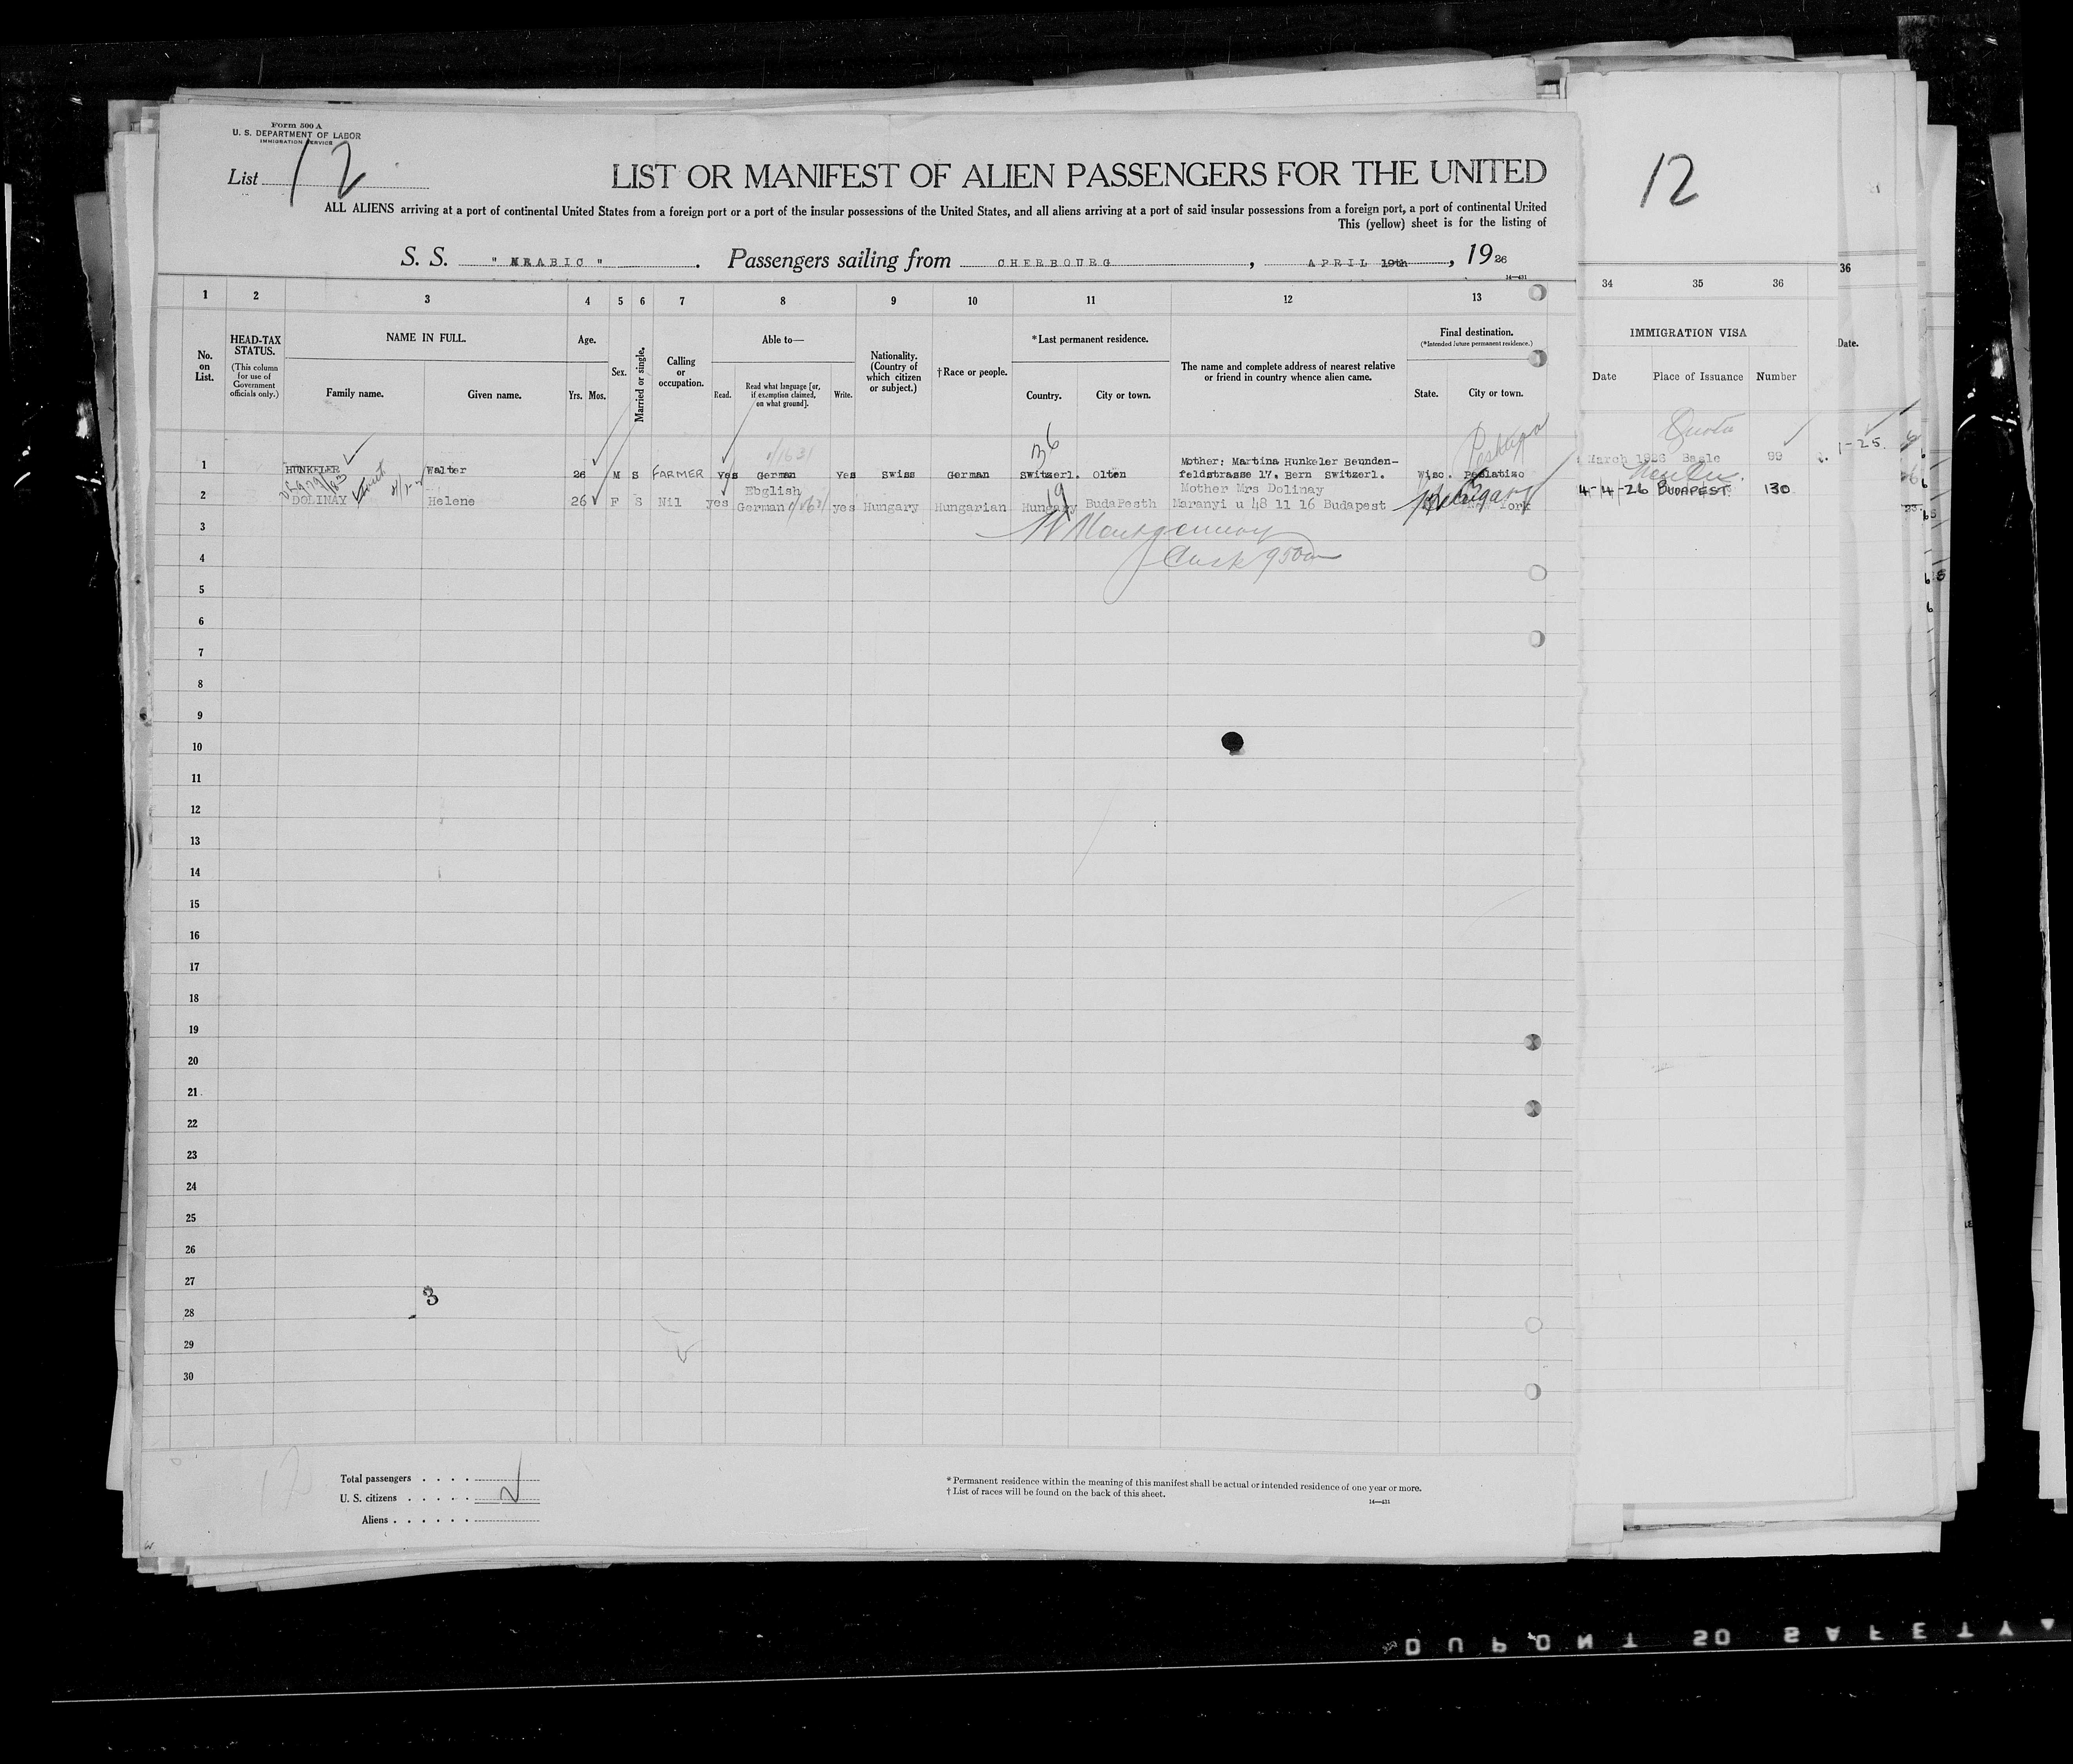 Form 500 A
U. S. DEPARTMENT OF LABOR
IMMIGRATION SERVICE
List 12
LIST OR MANIFEST OF ALIEN PASSENGERS FOR THE UNITED
ALL ALIENS arriving at a port of continental United States from a foreign port or a port of the insular possessions of the United States, and all aliens arriving at a port of said insular possessions from a foreign port, a port of continental United
This (yellow) sheet is for the listing of
S. S. " ARABIC ". Passengers sailing from CHERBOURG, APRIL 19th, 1926
14—431
1 2 3 4 5 6 7 8 9 10 11 12 13
No. on List.
HEAD-TAX STATUS.
(This column for use of Government officials only.)
NAME IN FULL.
Family name. Given name.
Age.
Yrs. Mos.
Sex.
Married or single.
Calling or occupation.
Able to—
Read. Read what language [or, if exemption claimed, on what ground]. Write.
Nationality. (Country of which citizen or subject.)
†Race or people.
*Last permanent residence.
Country. City or town.
The name and complete address of nearest relative or friend in country whence alien came.
Final destination.
(*Intended future permanent residence.)
State. City or town.
12
34 35 36
IMMIGRATION VISA
Date Place of Issuance Number
36
Date.
1-25
36
1 HUNKELER Walter 26 M S FARMER yes German Yes Swiss German Switzerl. Olten Mother: Martina Hunkeler Beunden-
feldstrasse 17, Bern Switzerl. Wisc.
March 1926 Basle 99
Quota
2 DOLINAY Helene 26 F S Nil yes Ebglish
German yes Hungary Hungarian Hungary BudaPesth Mother Mrs Dolinay
Maranyi u 48 11 16 Budapest York
4-4-26 BUDAPEST 130
19
3
4
5
6
7
8
9
10
11
12
13
14
15
16
17
18
19
20
21
22
23
24
25
26
27
3
28
29
30
12
Total passengers
U. S. citizens
Aliens
* Permanent residence within the meaning of this manifest shall be actual or intended residence of one year or more.
† List of races will be found on the back of this sheet.
14—431
DUPONT 50 SAFETY